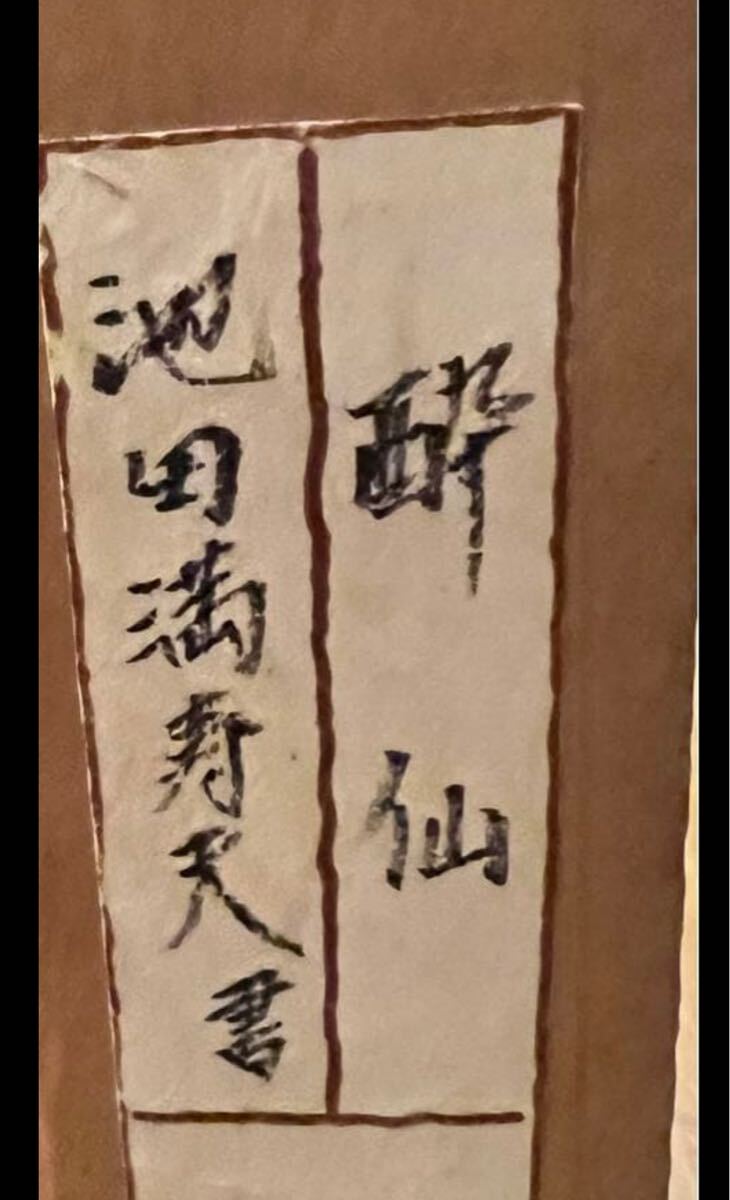 酔仙
池田満寿夫書